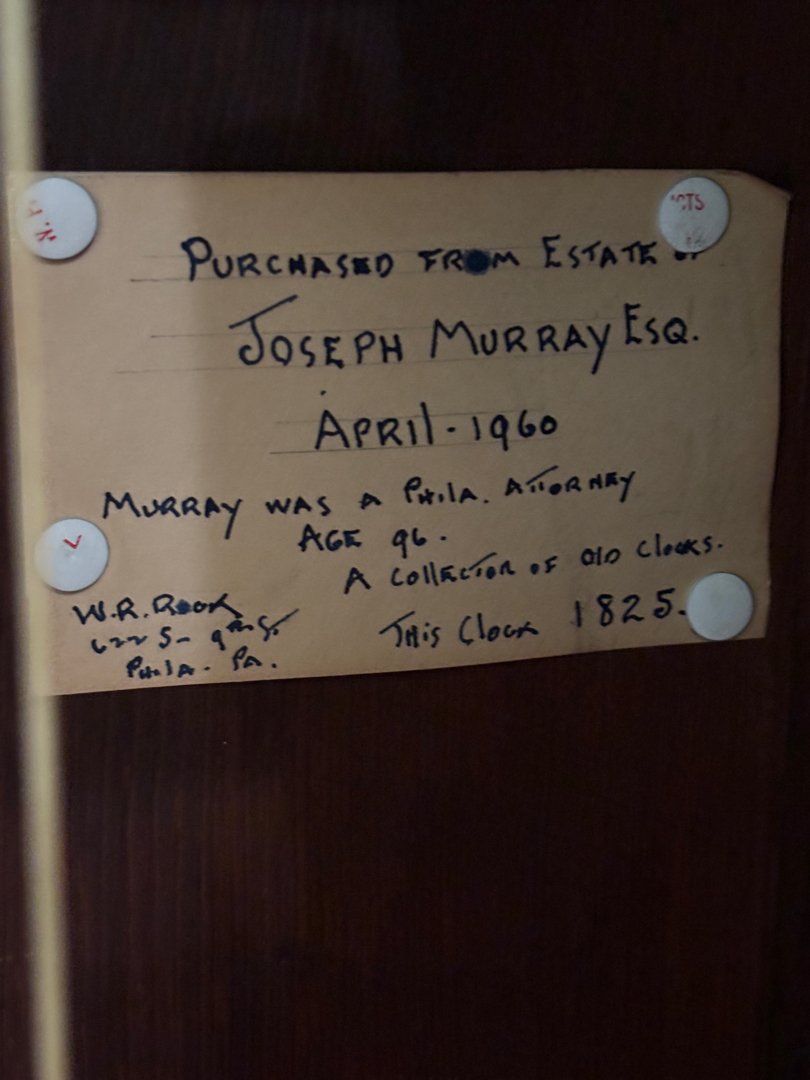 PURCHASED FROM ESTATE OF
JOSEPH MURRAY ESQ.
APRIL - 1960
MURRAY WAS A PHILA. ATTORNEY
AGE 96.
A COLLECTOR OF OLD CLOCKS.
THIS CLOCK 1825.
W.R. ROOK
622 S- 9TH ST.
PHILA. PA.